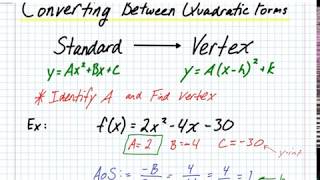 Converting Between Quadratic Forms
Standard → Vertex
y=Ax²+Bx+C y=A(x-h)²+k
* Identify A and Find Vertex
Ex: f(x)=2x²-4x-30
A=2 B=-4 C=-30
y-int
AoS: = -B = 4 = 4 = 1